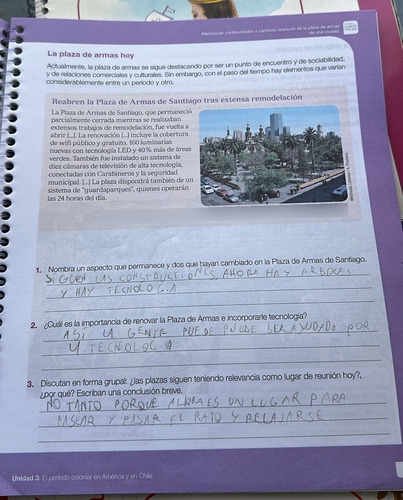 Reconocer continuidades y cambios respecto de la plaza de armas
de una ciudad.
La plaza de armas hoy
Actualmente, la plaza de armas se sigue destacando por ser un punto de encuentro y de sociabilidad,
y de relaciones comerciales y culturales. Sin embargo, con el paso del tiempo hay elementos que varían
considerablemente entre un período y otro.
Reabren la Plaza de Armas de Santiago tras extensa remodelación
La Plaza de Armas de Santiago, que permaneció
parcialmente cerrada mientras se realizaban
extensos trabajos de remodelación, fue vuelta a
abrir [...]. La renovación [...] incluye la cobertura
de wifi público y gratuito, 160 luminarias
nuevas con tecnología LED y 40 % más de áreas
verdes. También fue instalado un sistema de
diez cámaras de televisión de alta tecnología,
conectadas con Carabineros y la seguridad
municipal. [...] La plaza dispondrá también de un
sistema de "guardaparques", quienes operarán
las 24 horas del día.
1. Nombra un aspecto que permanece y dos que hayan cambiado en la Plaza de Armas de Santiago.
SIGUEN LAS CONSTRUCCIONES, AHORA HAY ARBOLES
Y HAY TECNOLOGIA
2. ¿Cuál es la importancia de renovar la Plaza de Armas e incorporarle tecnología?
ASI LA GENTE PUEDE PUEDE SER AYUDADA POR
LA TECNOLOGIA
3. Discutan en forma grupal: ¿las plazas siguen teniendo relevancia como lugar de reunión hoy?,
¿por qué? Escriban una conclusión breve.
NO TANTO PORQUE AHORA ES UN LUGAR PARA
PASEAR Y PASAR EL RATO Y RELAJARSE
Unidad 3: El período colonial en América y en Chile